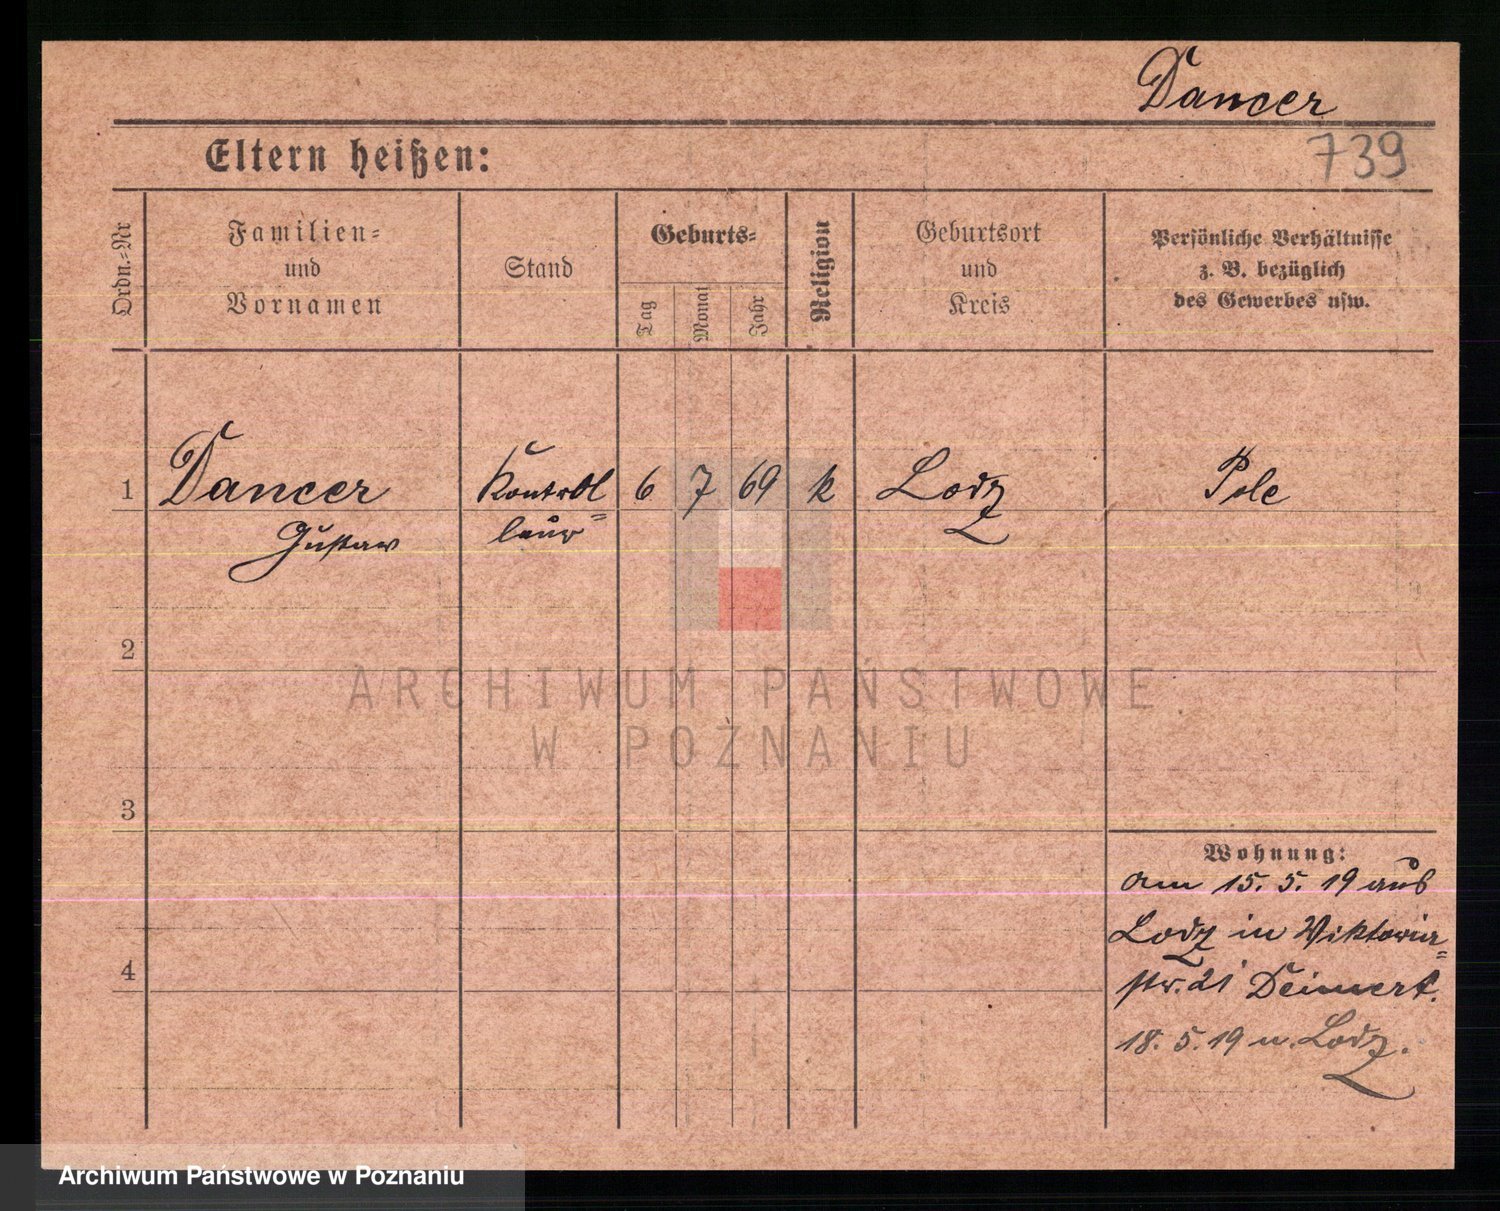 Dancer
Eltern heißen:
739
Ordn.=Nr
Familien=
und
Vornamen
Stand
Geburts=
Tag
Monat
Jahr
Religion
Geburtsort
und
Kreis
Persönliche Verhältnisse
z. B. bezüglich
des Gewerbes usw.
1 Dancer Kontrol 6 7 69 k Lodz Pole
Gustav leur
2
ARCHIWUM PAŃSTWOWE
W POZNANIU
3
Wohnung:
am 15. 5. 19 aus
4
Lodz in Viktoria=
str. 21 Deinert.
18. 5. 19 n. Lodz.
Archiwum Państwowe w Poznaniu